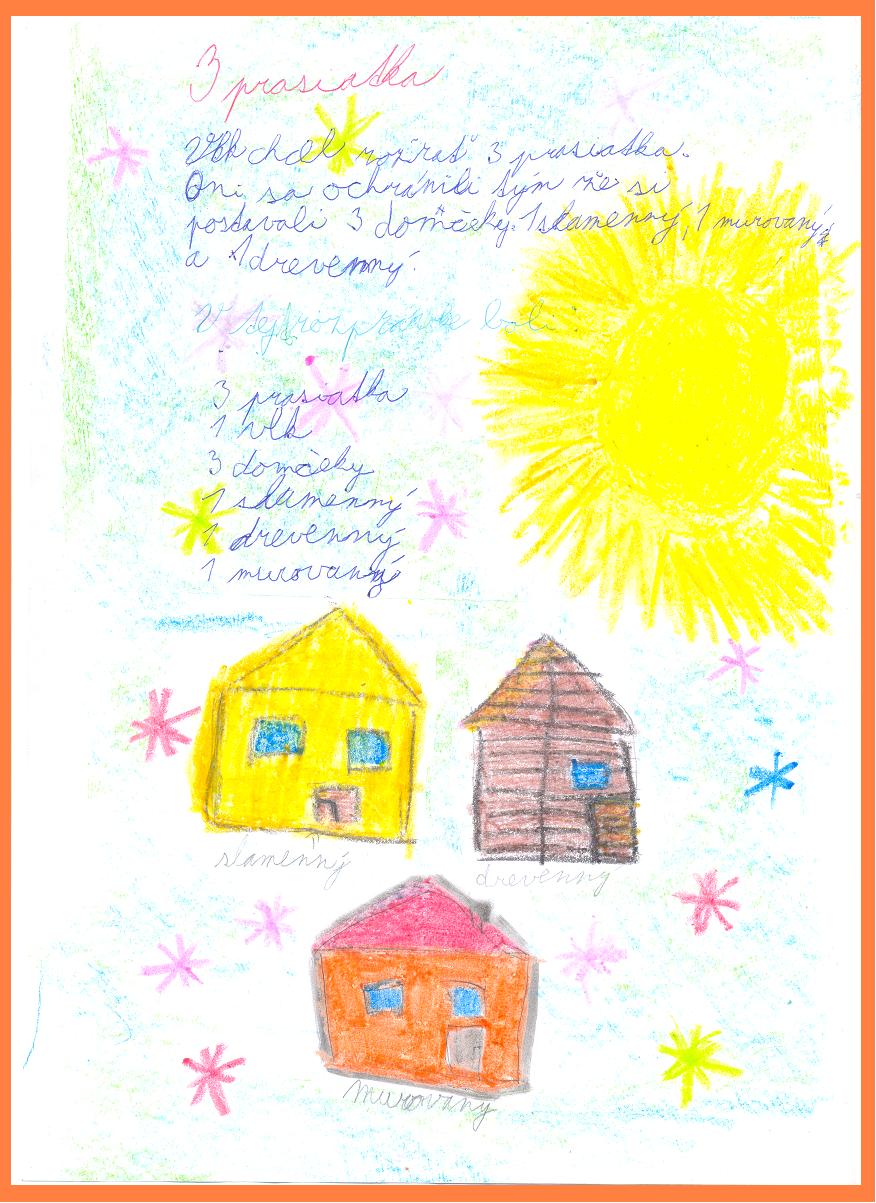 3 prasiatka
Vlk chcel rozžrať 3 prasiatka.
Oni sa ochránili tým že si
postavali 3 domčeky. 1 slamenný, 1 murovaný,
a 1 drevenný.
V tejto rozprávke boli:
3 prasiatka
1 vlk
3 domčeky
1 slamenný
1 drevenný
1 murovaný
slamenný
drevenný
murovaný